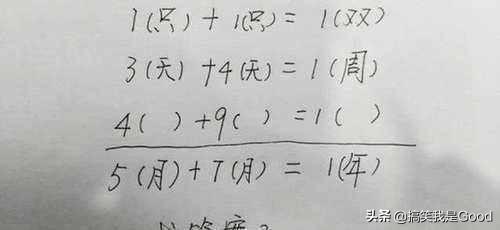 1(只)+1(只)=1(双)
3(天)+4(天)=1(周)
4( )+9( )=1( )
5(月)+7(月)=1(年)
头条 @搞笑我是Good